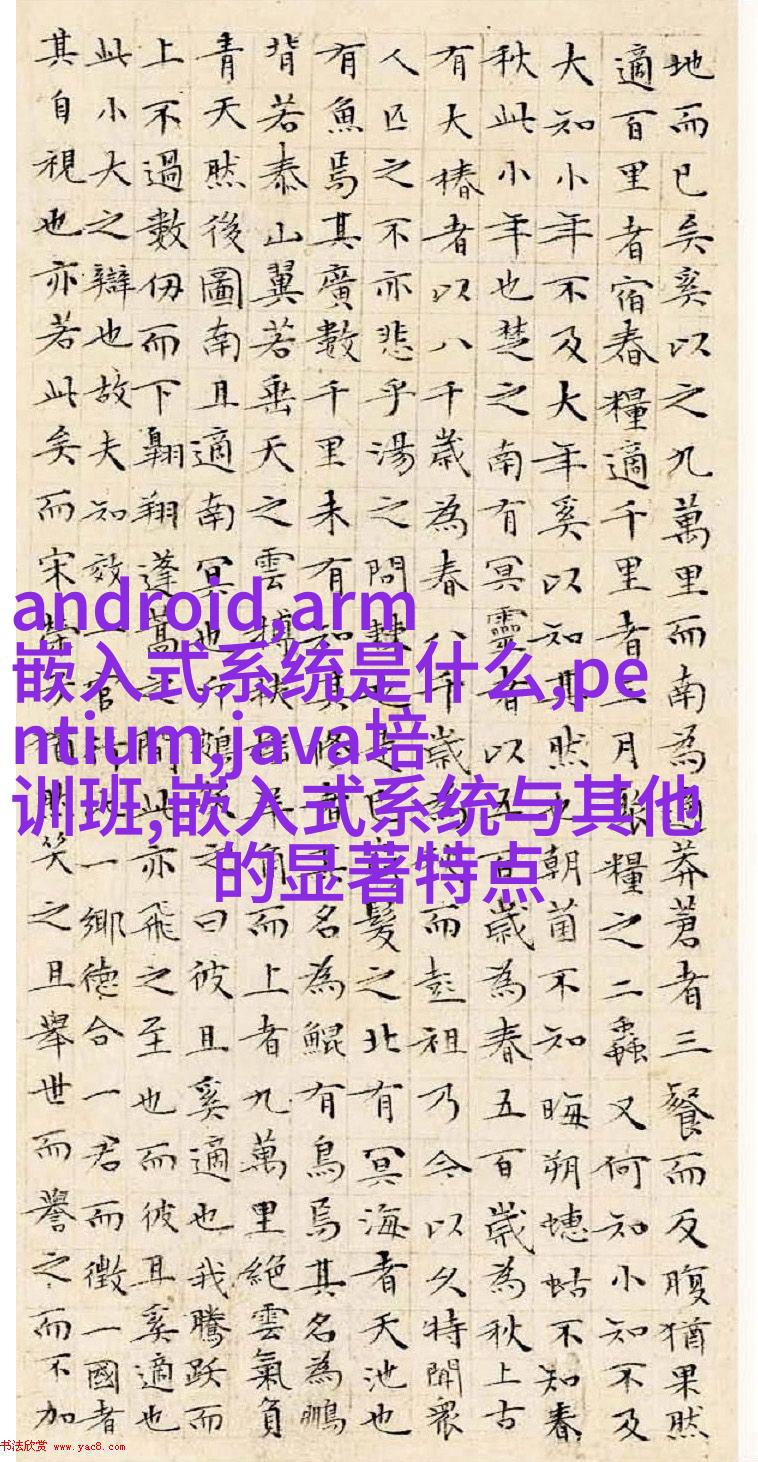 地而已矣奚以之九萬里而南為適莽蒼者三餐而反腹猶果然
適百里者宿舂糧適千里者三月聚糧之二蟲又何知小知不及
大知小年不及大年奚以知其然也朝菌不知晦朔蟪蛄不知春
秋此小年也楚之南有冥靈者以五百歲為春五百歲為秋上古
有大椿者以八千歲為春八千歲為秋而彭祖乃今以久特聞眾
人匹之不亦悲乎湯之問棘也是已髮之北有冥海者天池也
有魚焉其廣數千里未有知其修者其名為鯤有鳥焉其名為鵬
背若泰山翼若垂天之雲摶扶搖羊角而上者九萬里絕雲氣負
青天然後圖南且適南冥也斥鴳笑之曰彼且奚適也我騰跃而
上不過數仞而下翱翔蓬蒿之間此亦飛之至也而彼且奚適也
此小大之辯也故夫知效一官行比一鄉德合一君而徵一國者
其自視也亦若此矣而宋榮子猶然笑之且舉世而譽之而不加
android,arm
嵌入式系统是什么,pe
ntium,java培
训班,嵌入式系统与其他
的显著特点
书法欣赏 www.yac8.com